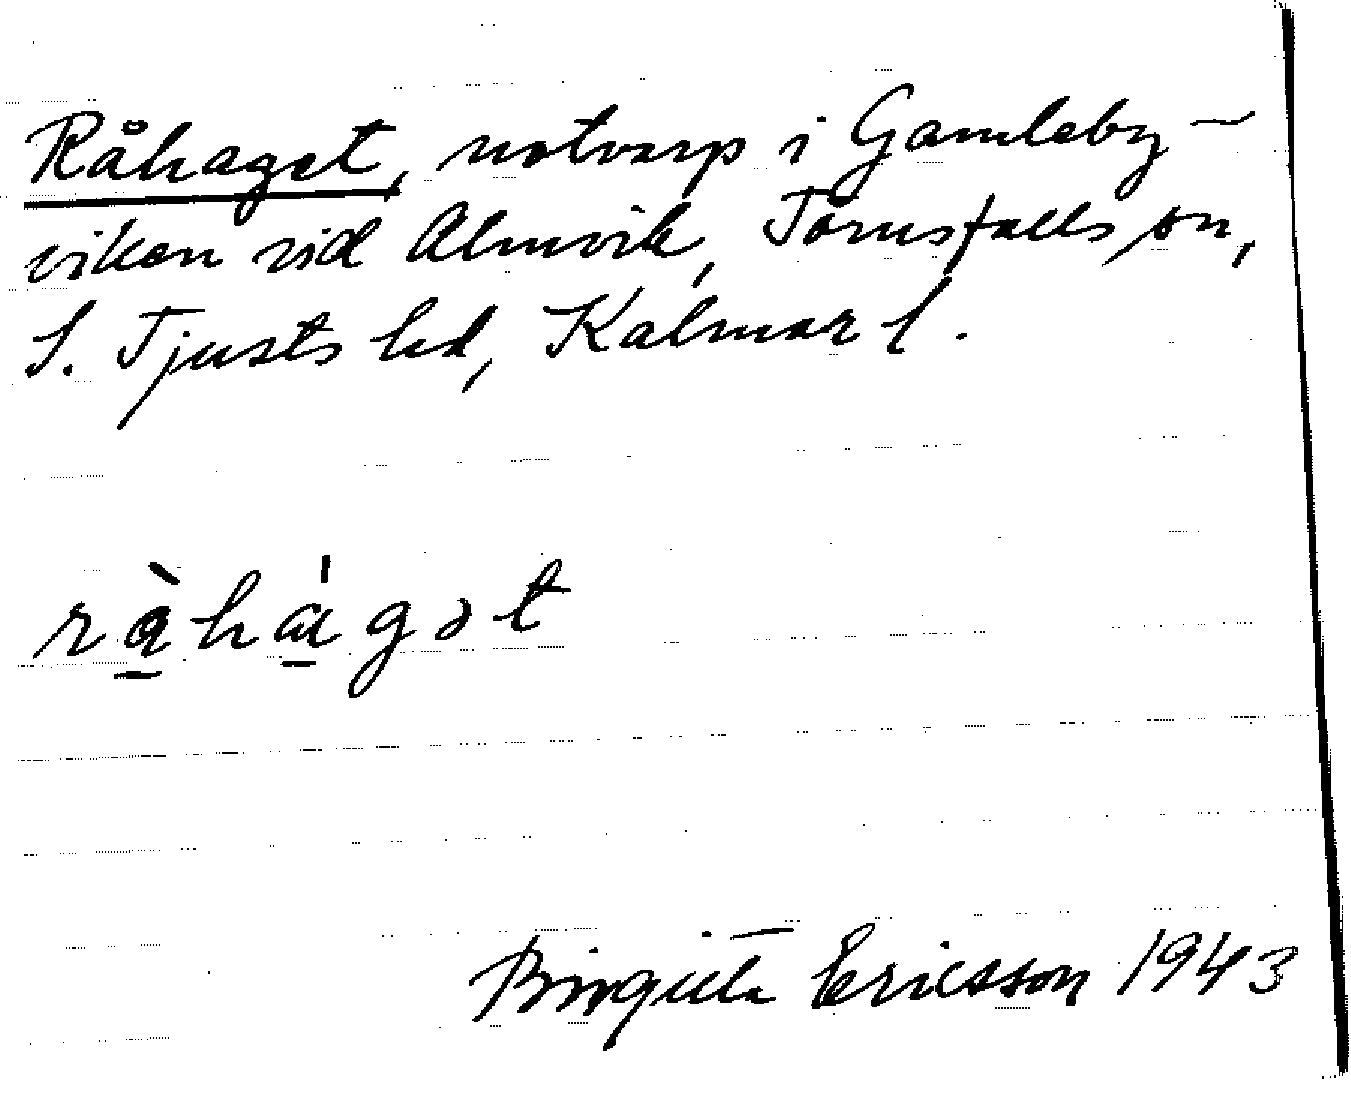 Råhaget, notvarp i Gamleby-
viken vid Almvik, Törnsfalls sn,
S. Tjusts hd, Kalmar l.
ràhágət
Birgitta Ericsson 1943